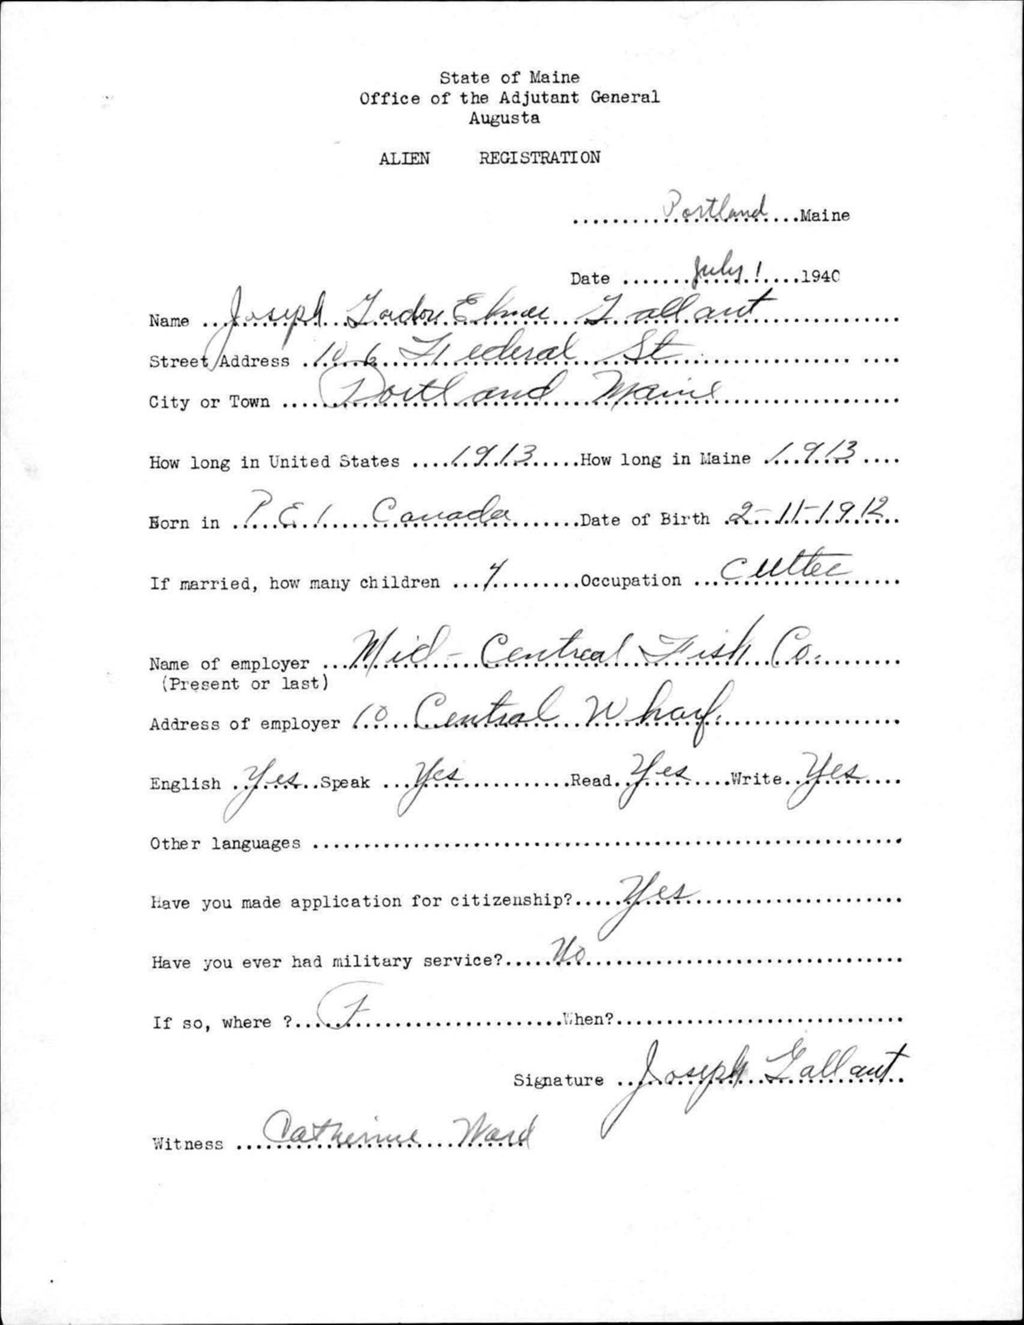 State of Maine
Office of the Adjutant General
Augusta
ALIEN REGISTRATION
.........Portland...Maine
Date .......July 1....1940
Name ..Joseph Gordon Elmer Gallant
Street Address .106 Federal St.
City or Town ....Portland Maine
How long in United States ....1913.....How long in Maine .1913....
Born in .P.E.I. Canada.......Date of Birth .2-11-1912..
If married, how many children ...4.........Occupation ...Cutter
Name of employer ...Mid-Central Fish Co.
(Present or last)
Address of employer 10 Central Wharf.
English .Yes..Speak ..Yes............Read.Yes....Write..Yes...
Other languages ............................................................
Have you made application for citizenship?.....Yes.....................
Have you ever had military service?.....No................................
If so, where ?..........................When?............................
Signature ..Joseph Gallant.
Witness ...Catherine Ward